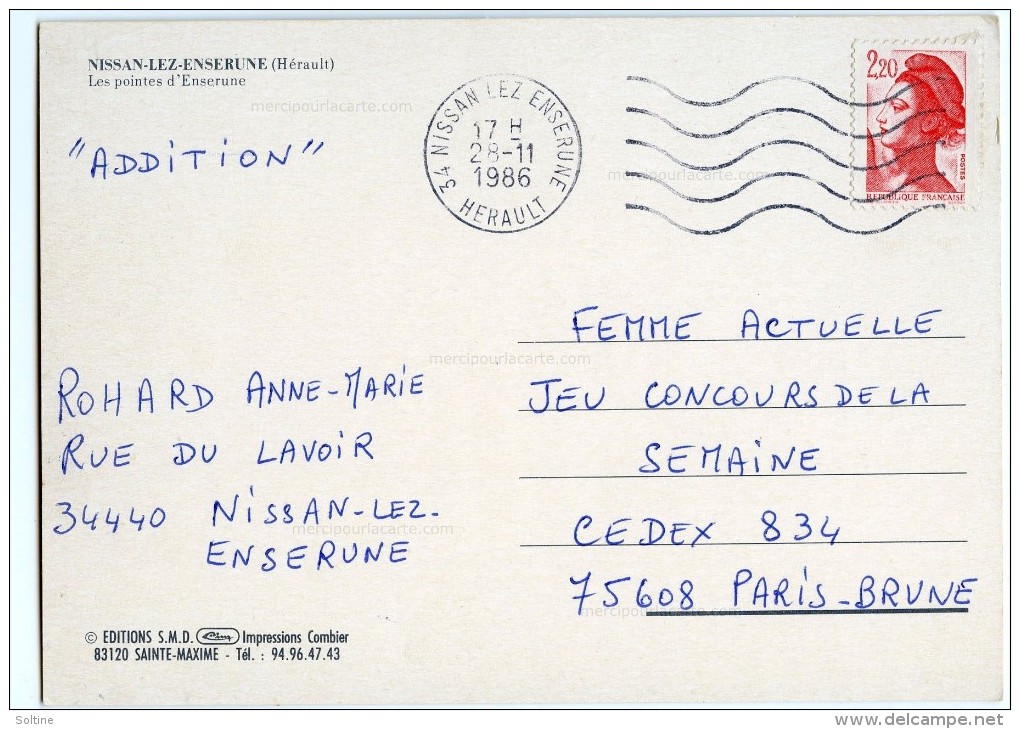 NISSAN-LEZ-ENSERUNE (Hérault)
Les pointes d'Enserune
mercipourlacarte.com
"ADDITION"
34 NISSAN LEZ ENSERUNE
17 H
28-11
1986
HERAULT
mercipourlacarte.com
2,20
POSTES
REPUBLIQUE FRANÇAISE
FEMME ACTUELLE
mercipourlacarte.com
JEU CONCOURS DE LA
SEMAINE
CEDEX 834
75608 PARIS-BRUNE
mercipourlacarte.com
ROHARD ANNE-MARIE
RUE DU LAVOIR
34440 NISSAN-LEZ-
mercipourlacarte.com
ENSERUNE
© EDITIONS S.M.D. Cim Impressions Combier
83120 SAINTE-MAXIME - Tél. : 94.96.47.43
Soltine
www.delcampe.net